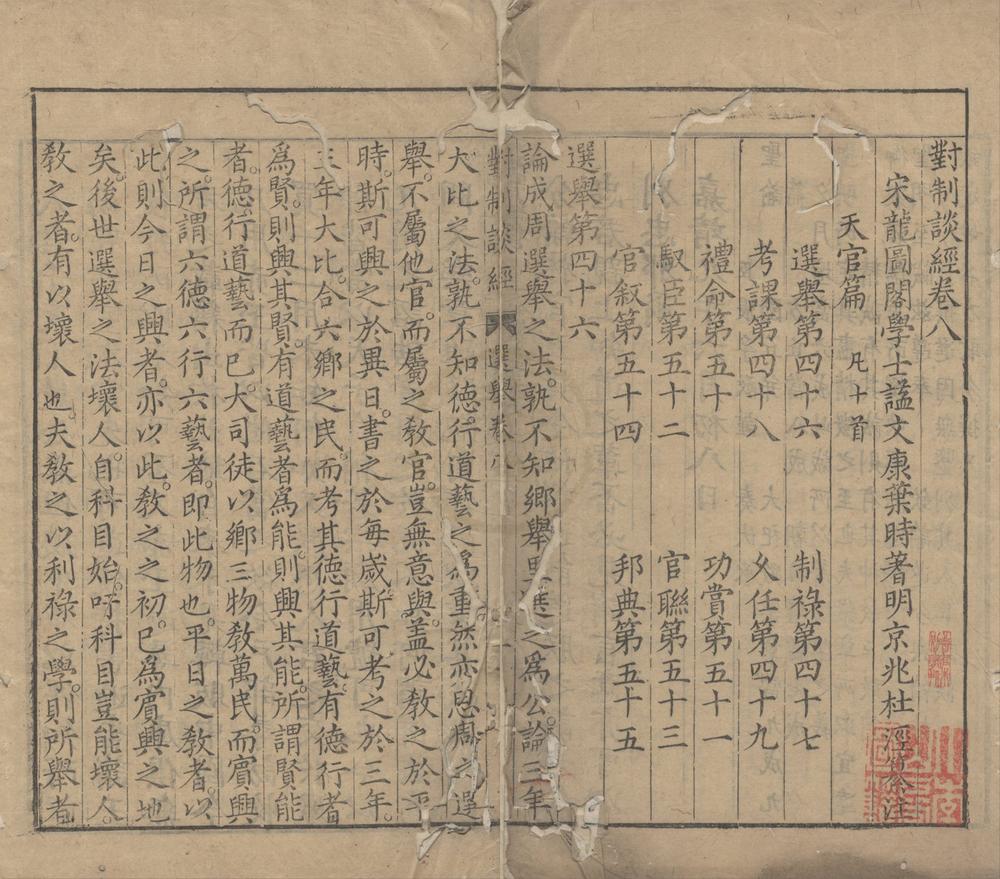 對制談經卷八
宋龍圖閣學士諡文康葉時著明京兆杜涇
天官篇 凡十首
選舉第四十六 制祿第四十七
考課第四十八 久任第四十九
禮命第五十 功賞第五十一
馭臣第五十二 官聯第五十三
官叙第五十四 邦典第五十五
選舉第四十六
論成周選舉之法孰不知鄉舉里選之爲公論三年
對制談經 選舉卷八
大比之法孰不知德行道藝之爲重然亦思周之選
舉不屬他官而屬之教官豈無意與蓋必教之於平
時斯可興之於異日書之於每歲斯可考之於三年
三年大比合六鄉之民而考其德行道藝有德行者
爲賢則興其賢有道藝者爲能則興其能所謂賢能
者德行道藝而已大司徒以鄉三物教萬民而賓興
之所謂六德六行六藝者即此物也平日之教者以
此則今日之興者亦以此教之之初已爲賓興之地
矣後世選舉之法壞人自科目始吁科目豈能壞人
教之者有以壞人也夫教之以利祿之學則所舉者